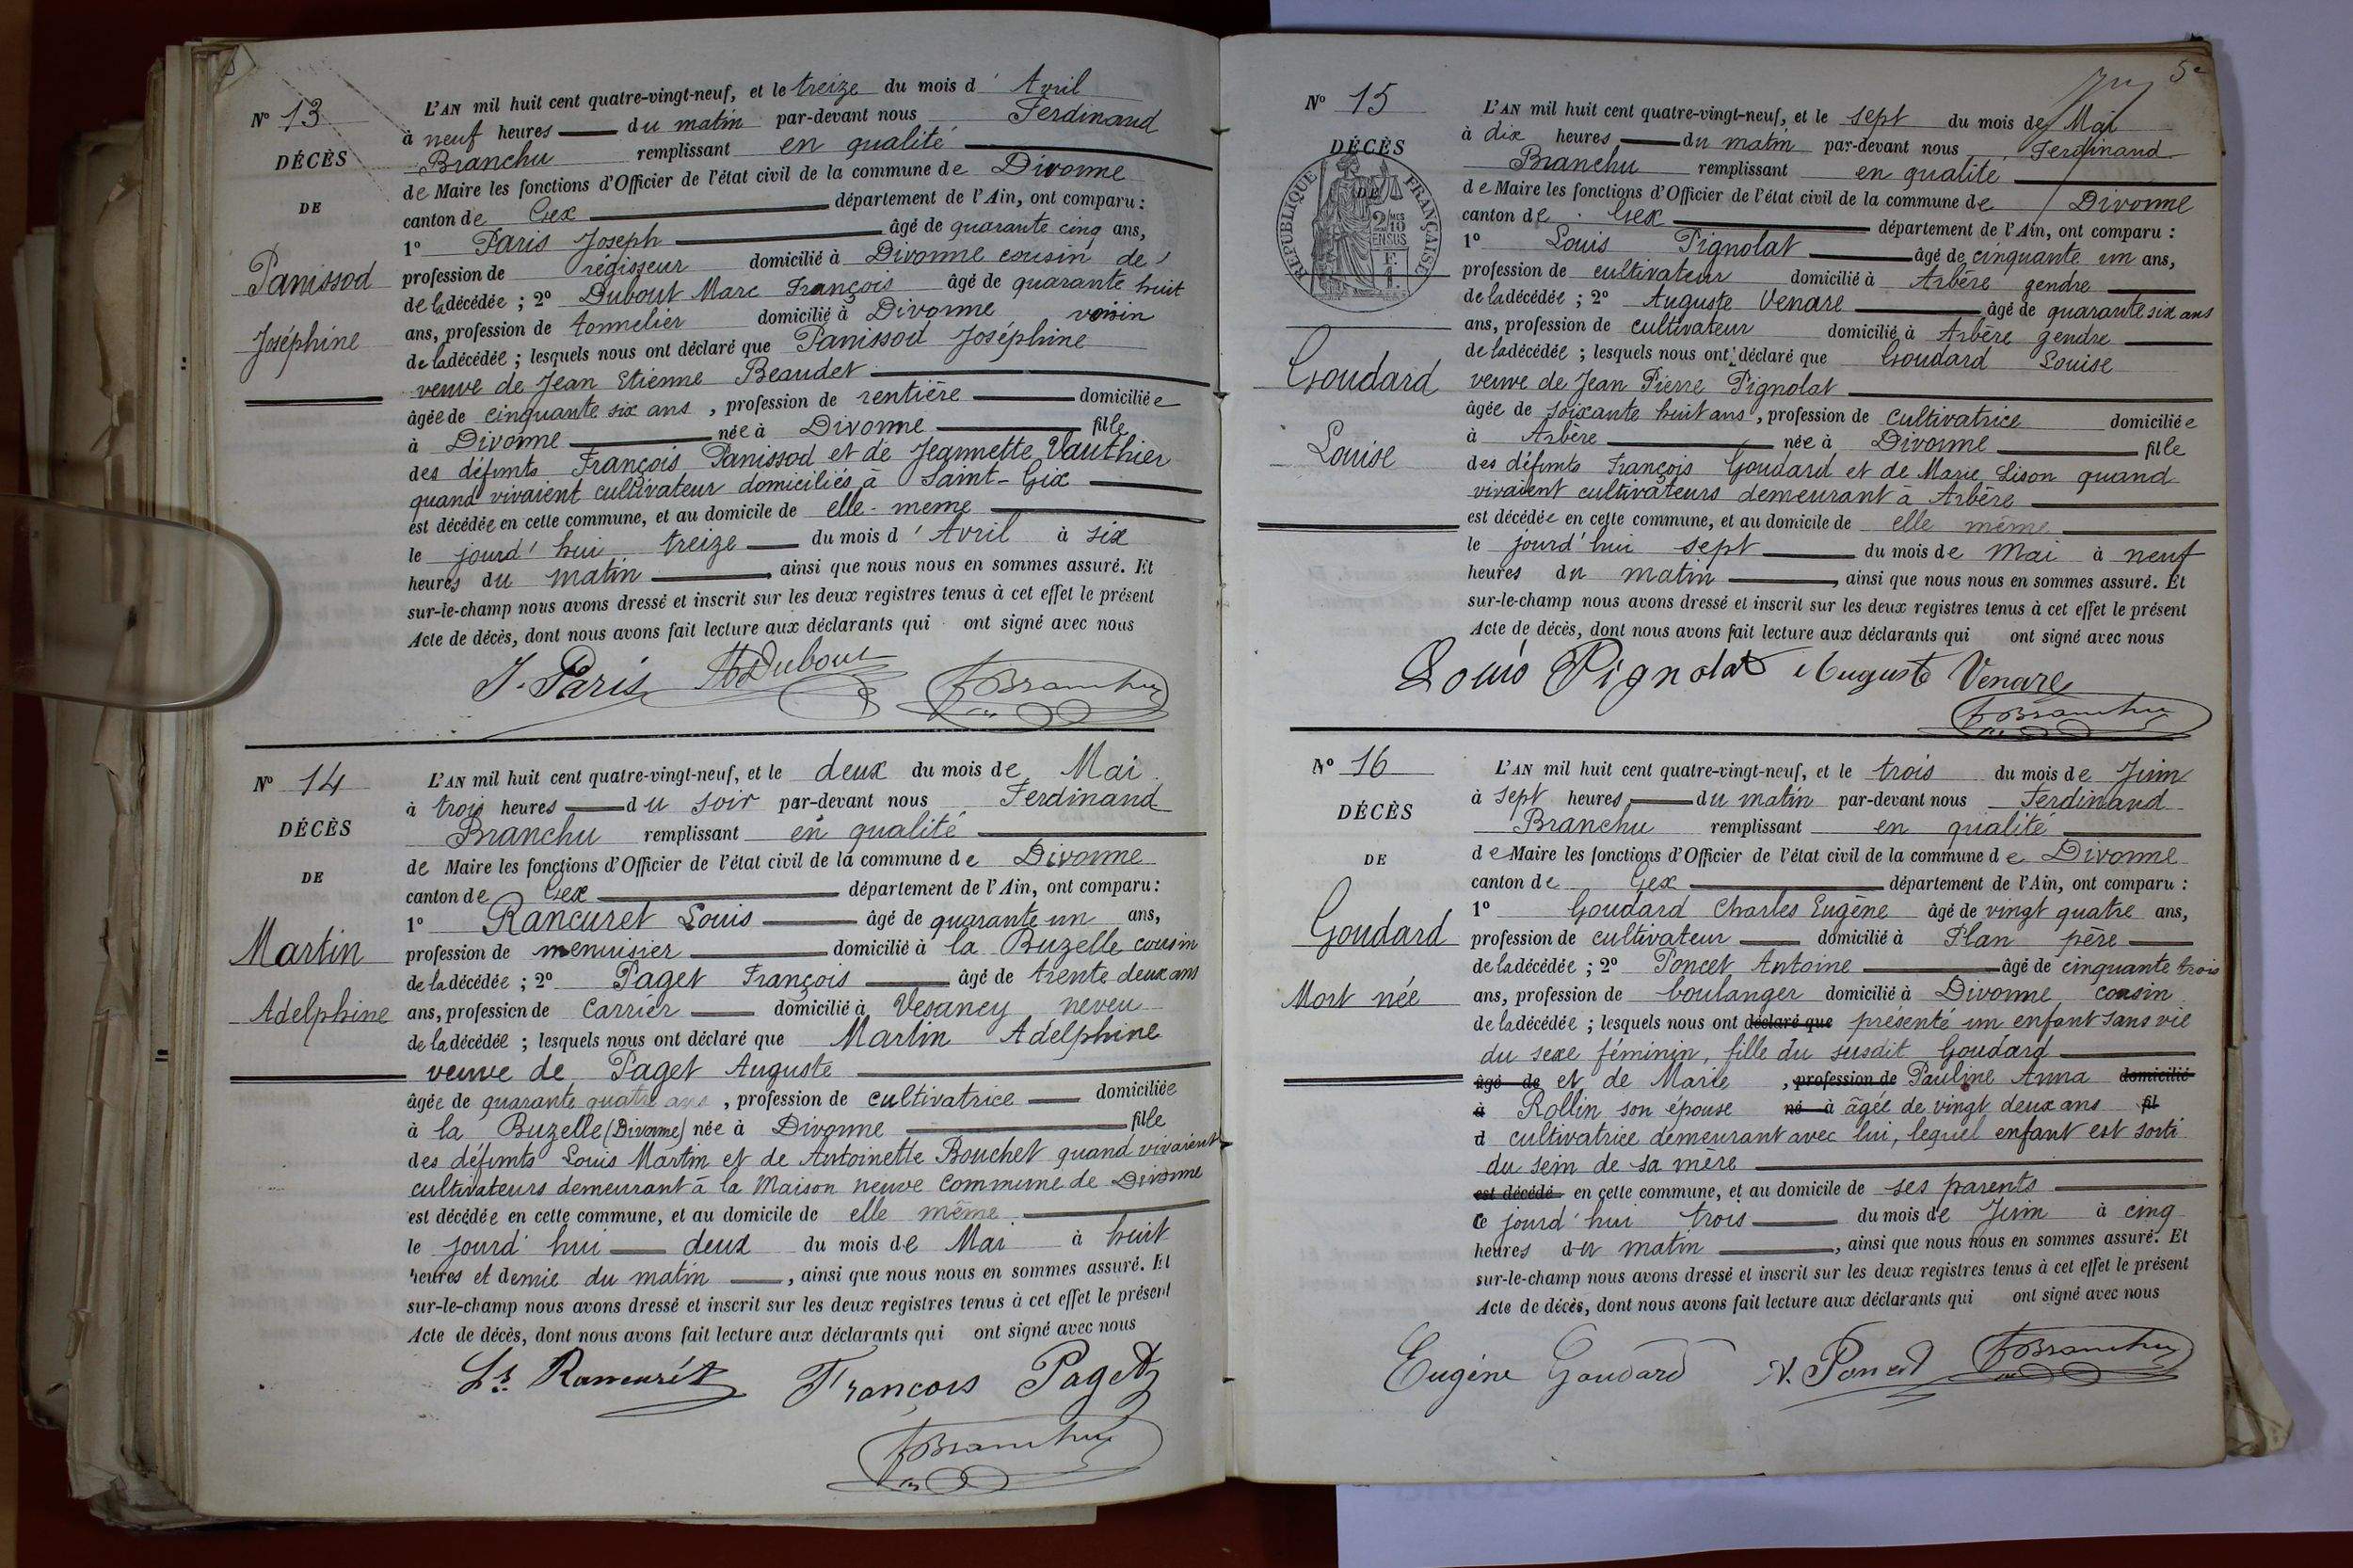 N° 13
DÉCÈS
DE
Panissod
Joséphine
L'AN mil huit cent quatre-vingt-neuf, et le treize du mois d' Avril
à neuf heures du matin par-devant nous Ferdinand
Branchu remplissant en qualité
de Maire les fonctions d'Officier de l'état civil de la commune de Divonne
canton de Gex département de l'Ain, ont comparu :
1° Paris Joseph âgé de quarante cinq ans,
profession de régisseur domicilié à Divonne cousin de
de la décédée ; 2° Dubout Marc François âgé de quarante huit
ans, profession de tonnelier domicilié à Divonne voisin
de la décédée ; lesquels nous ont déclaré que Panissod Joséphine
veuve de Jean Etienne Beaudet
âgée de cinquante six ans, profession de rentière domiciliée
à Divonne née à Divonne fille
des défunts François Panissod et de Jeannette Vauthier
quand vivaient cultivateur domiciliés à Saint-Gix
est décédée en cette commune, et au domicile de elle-meme
le jourd'hui treize du mois d'Avril à six
heures du matin, ainsi que nous nous en sommes assuré. Et
sur-le-champ nous avons dressé et inscrit sur les deux registres tenus à cet effet le présent
Acte de décès, dont nous avons fait lecture aux déclarants qui ont signé avec nous
J. Paris Dubout F Branchu
N° 14
DÉCÈS
DE
Martin
Adelphine
L'AN mil huit cent quatre-vingt-neuf, et le deux du mois de Mai
à trois heures du soir par-devant nous Ferdinand
Branchu remplissant en qualité
de Maire les fonctions d'Officier de l'état civil de la commune de Divonne
canton de Gex département de l'Ain, ont comparu :
1° Rancuret Louis âgé de quarante un ans,
profession de menuisier domicilié à la Buzelle cousin
de la décédée ; 2° Paget François âgé de trente deux ans
ans, profession de carrier domicilié à Vesancy neveu
de la décédée ; lesquels nous ont déclaré que Martin Adelphine
veuve de Paget Auguste
âgée de quarante quatre ans, profession de cultivatrice domiciliée
à la Buzelle (Divonne) née à Divonne fille
des défunts Louis Martin et de Antoinette Bouchet quand vivaient
cultivateurs demeurant à la Maison neuve commune de Divonne
est décédée en cette commune, et au domicile de elle même
le jourd'hui deux du mois de Mai à huit
heures et demie du matin, ainsi que nous nous en sommes assuré. Et
sur-le-champ nous avons dressé et inscrit sur les deux registres tenus à cet effet le présent
Acte de décès, dont nous avons fait lecture aux déclarants qui ont signé avec nous
Ls. Rancurét François Paget
F Branchu
5e
N° 15
DÉCÈS
DE
RÉPUBLIQUE FRANÇAISE
2/10
EN SUS
Goudard
Louise
L'AN mil huit cent quatre-vingt-neuf, et le sept du mois de Mai
à dix heures du matin par-devant nous Ferdinand
Branchu remplissant en qualité
de Maire les fonctions d'Officier de l'état civil de la commune de Divonne
canton de Gex département de l'Ain, ont comparu :
1° Louis Pignolat âgé de cinquante un ans,
profession de cultivateur domicilié à Arbère gendre
de la décédée ; 2° Auguste Venare âgé de quarante six ans
ans, profession de cultivateur domicilié à Arbère gendre
de la décédée ; lesquels nous ont déclaré que Goudard Louise
veuve de Jean Pierre Pignolat
âgée de soixante huit ans, profession de cultivatrice domiciliée
à Arbère née à Divonne fille
des défunts François Goudard et de Marie Lison quand
vivaient cultivateurs demeurant à Arbère
est décédée en cette commune, et au domicile de elle même
le jourd'hui sept du mois de Mai à neuf
heures du matin, ainsi que nous nous en sommes assuré. Et
sur-le-champ nous avons dressé et inscrit sur les deux registres tenus à cet effet le présent
Acte de décès, dont nous avons fait lecture aux déclarants qui ont signé avec nous
Louis Pignolat Auguste Venare
F Branchu
N° 16
DÉCÈS
DE
Goudard
Mort née
L'AN mil huit cent quatre-vingt-neuf, et le trois du mois de Juin
à sept heures du matin par-devant nous Ferdinand
Branchu remplissant en qualité
de Maire les fonctions d'Officier de l'état civil de la commune de Divonne
canton de Gex département de l'Ain, ont comparu :
1° Goudard Charles Eugène âgé de vingt quatre ans,
profession de cultivateur domicilié à Plan père
de la décédée ; 2° Poncet Antoine âgé de cinquante trois
ans, profession de boulanger domicilié à Divonne cousin
de la décédée ; lesquels nous ont déclaré que présenté un enfant sans vie
du sexe féminin, fille du susdit Goudard
âgé de et de Marie, profession de Pauline Anna domicilié
à Rollin son épouse né à âgée de vingt deux ans fil
d cultivatrice demeurant avec lui, lequel enfant est sorti
du sein de sa mère
est décédé en cette commune, et au domicile de ses parents
le jourd'hui trois du mois de Juin à cinq
heures du matin, ainsi que nous nous en sommes assuré. Et
sur-le-champ nous avons dressé et inscrit sur les deux registres tenus à cet effet le présent
Acte de décès, dont nous avons fait lecture aux déclarants qui ont signé avec nous
Eugène Goudard A. Poncet F Branchu